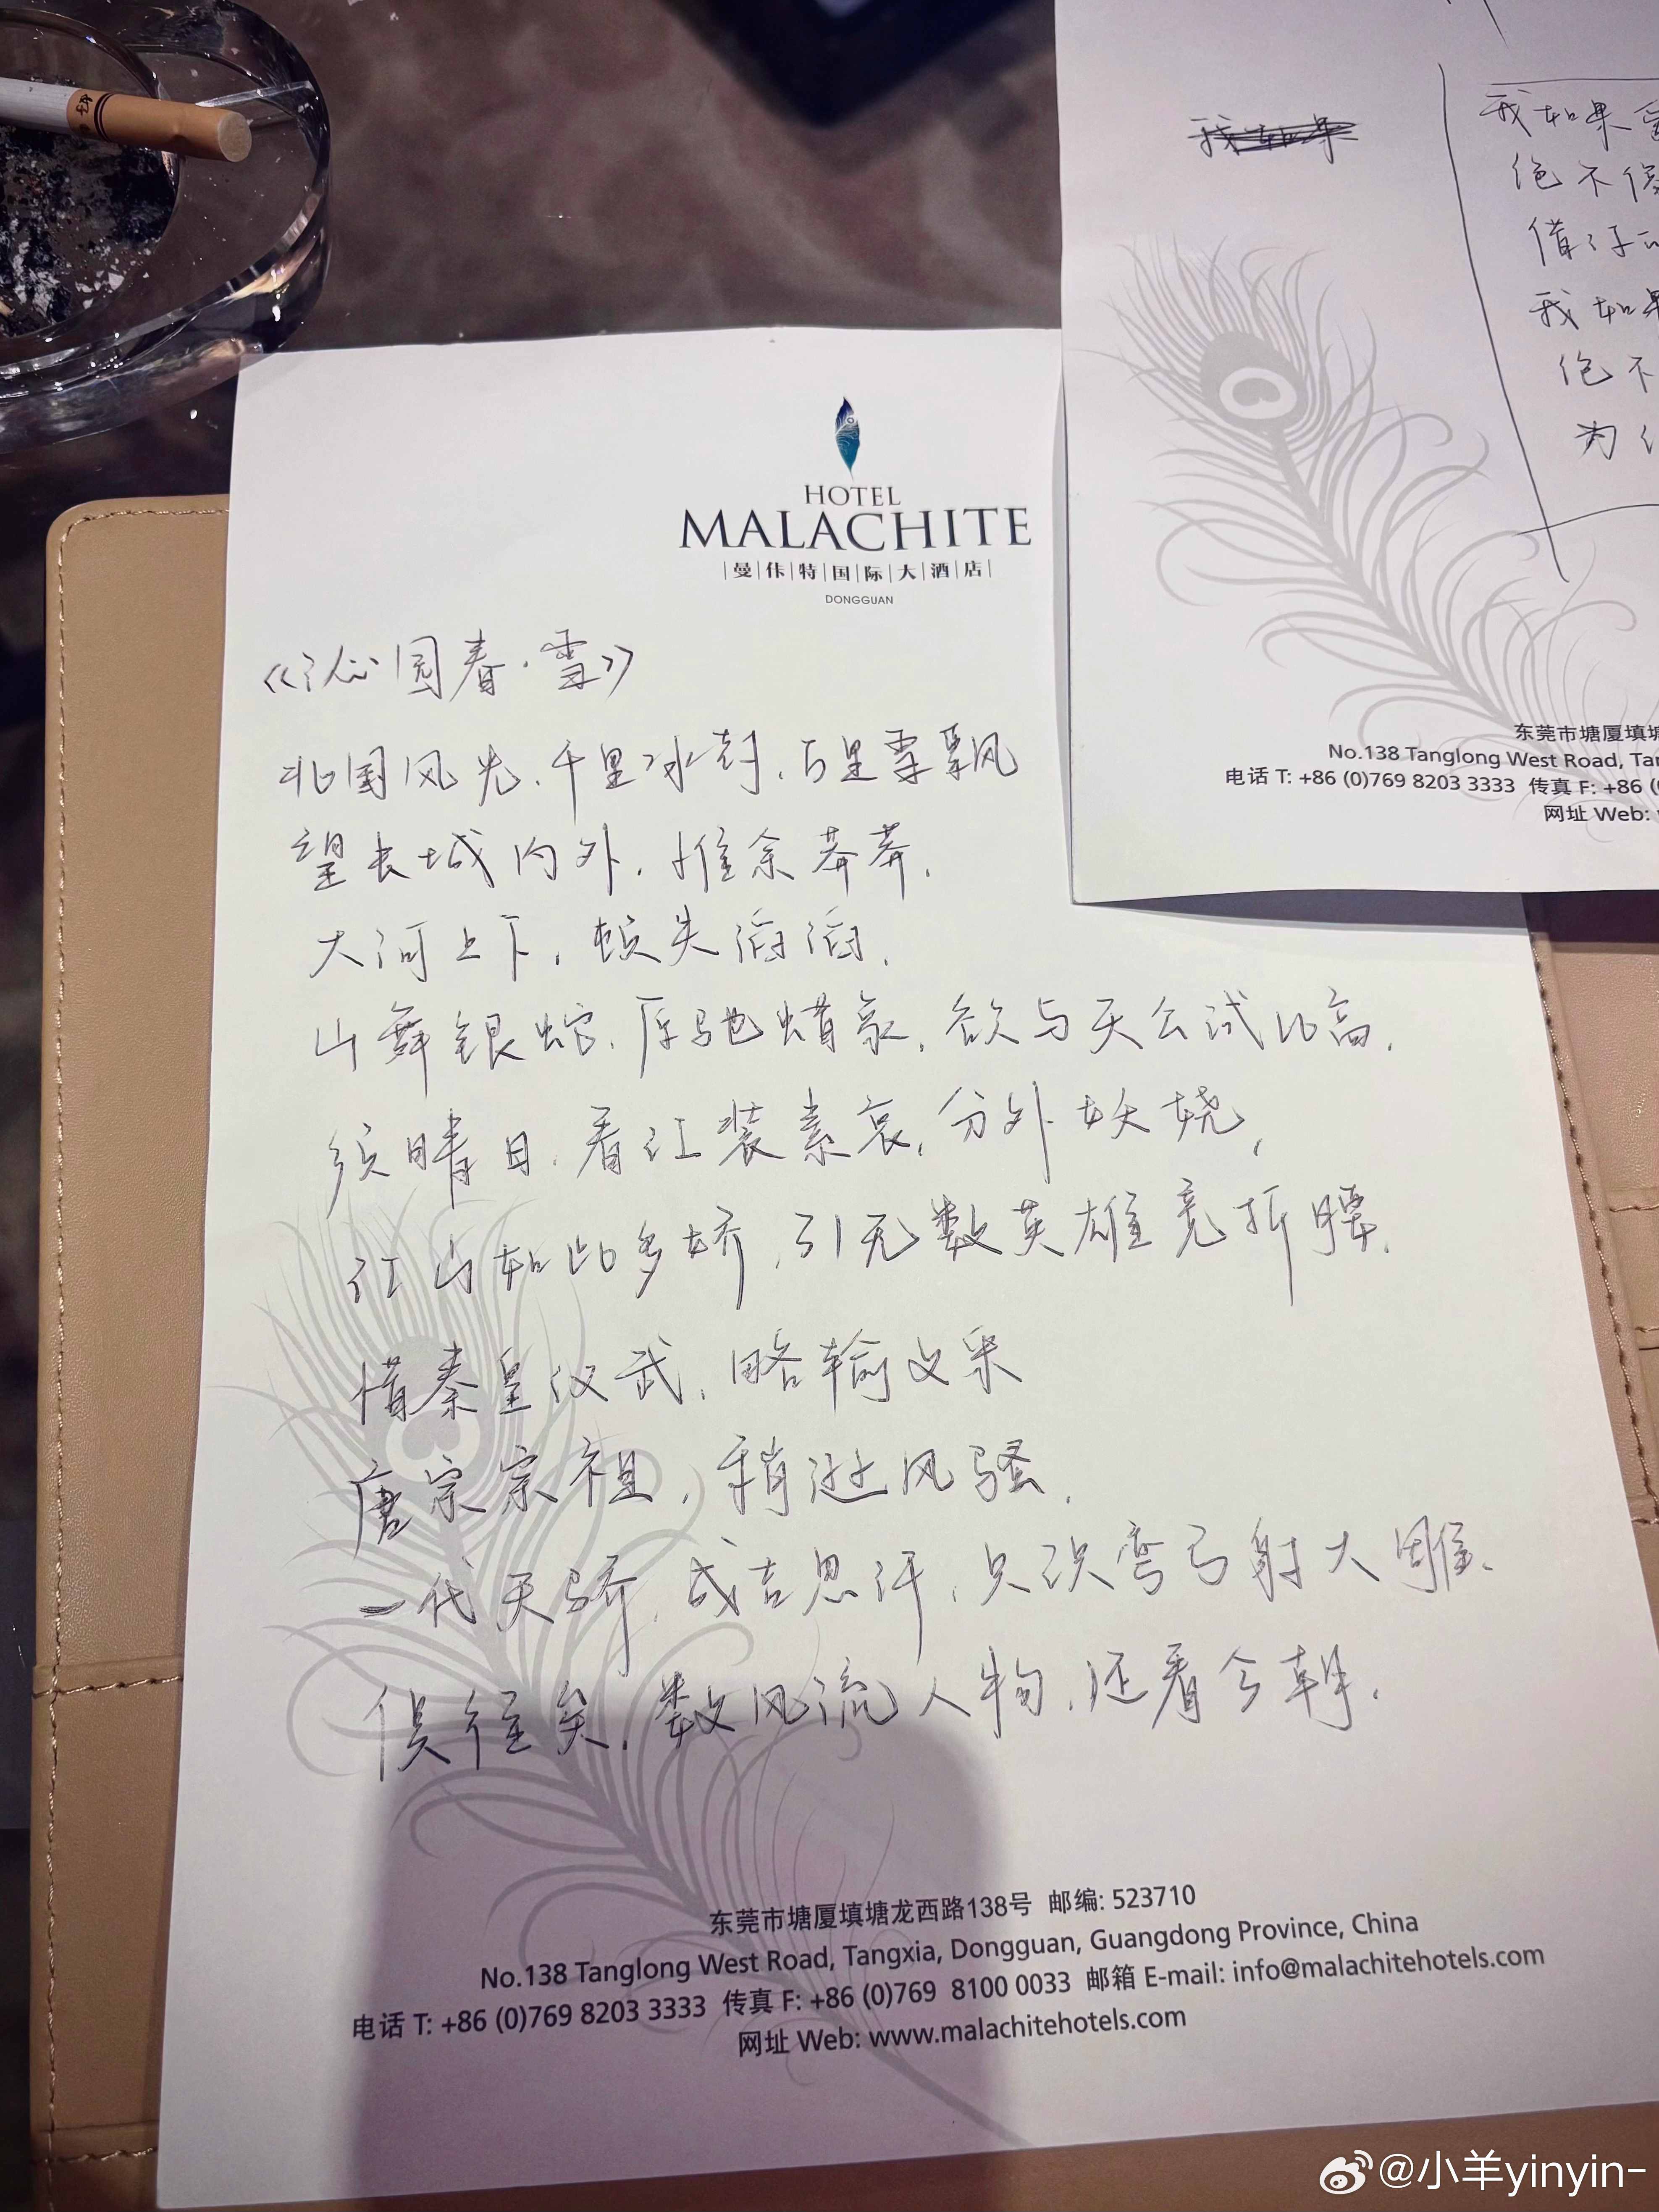 HOTEL
MALACHITE
曼佧特国际大酒店
DONGGUAN
《沁园春·雪》
北国风光,千里冰封,万里雪飘
望长城内外,惟余莽莽.
大河上下,顿失滔滔.
山舞银蛇,原驰蜡象,欲与天公试比高.
须晴日,看江装素裹,分外妖娆,
江山如此多娇,引无数英雄竞折腰.
惜秦皇汉武,略输文采
唐宗宗祖,稍逊风骚.
一代天骄,成吉思汗,只识弯弓射大雕.
俱往矣,数风流人物,还看今朝.
东莞市塘厦填塘龙西路138号 邮编: 523710
No.138 Tanglong West Road, Tangxia, Dongguan, Guangdong Province, China
电话 T: +86 (0)769 8203 3333 传真 F: +86 (0)769 8100 0033 邮箱 E-mail: info@malachitehotels.com
网址 Web: www.malachitehotels.com
我如果
我如果
绝不
借
我如果
绝不
为
东莞市塘厦填塘
No.138 Tanglong West Road, Tan
电话 T: +86 (0)769 8203 3333 传真 F: +86
网址 Web:
@小羊yinyin-